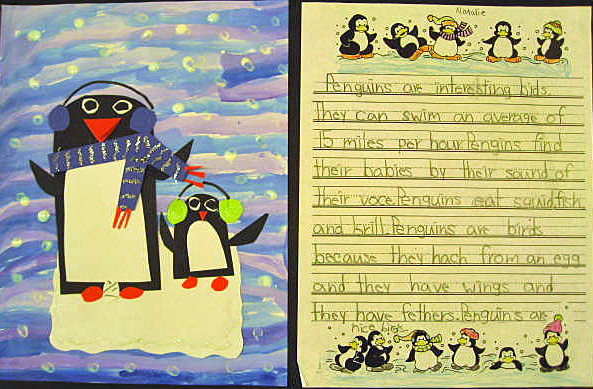 Natalie
Penguins are interesting birds.
They can swim an average of
15 miles per hour.Pengins find
their babies by their sound of
their voce.Penguins eat squid,fish
and krill.Penguins are birds
because they hach from an egg
and they have wings and
they have fethers.Penguins are
nice birds.